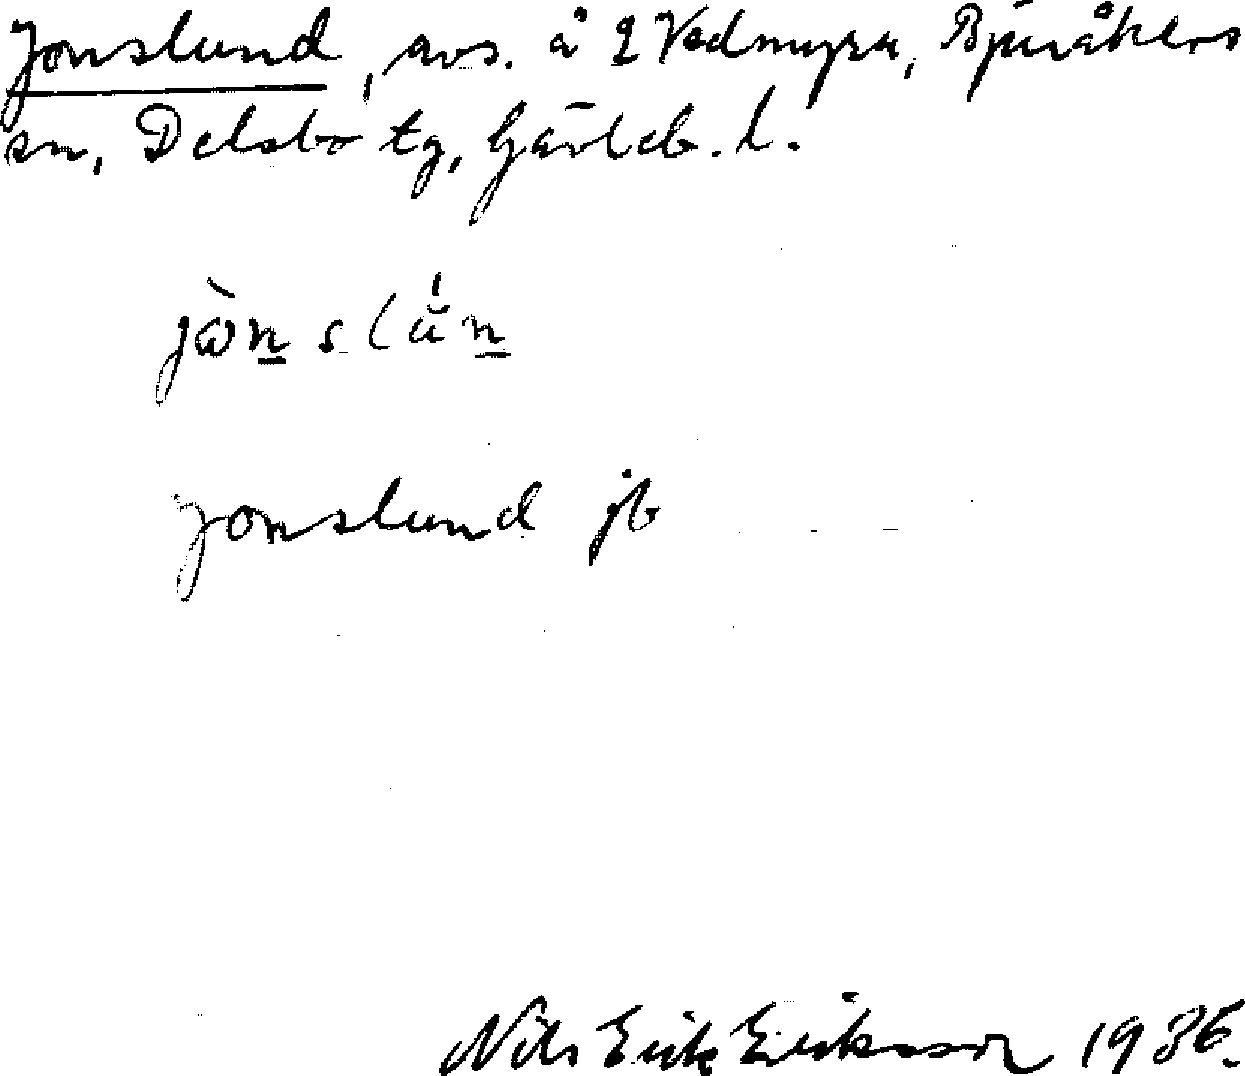 Jonslund, avs. å 2 Vedmyra, Bjuråkers
sn, Delsbo tg, Gävleb. l.
Jonslund jb
Nils Erik Eriksson 1936.